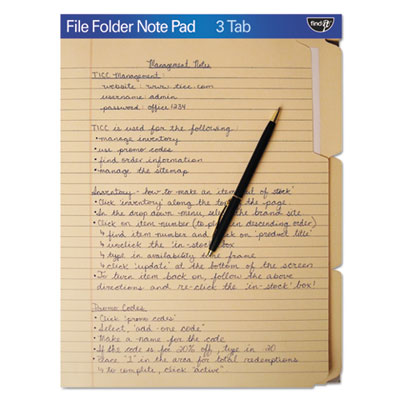 File Folder Note Pad 3 Tab
find it
Management Notes
TICC Management:
website: www.ticc.com
username: admin
password: office1234
TICC is used for the following:
• manage inventory
• use promo codes
• find order information
• manage the sitemap
Inventory - how to make an item 'out of stock'
• Click 'inventory' along the top of the page
• In the drop down menu, select the brand site
• Click on item number (to place in descending order)
↳ find item number and click on 'product title'
↳ unclick the 'in-stock' box
↳ type in availability time frame
↳ click 'update' at the bottom of the screen
• To turn item back on, follow the above
directions and re-click the 'in-stock' box!
Promo Codes
• Click 'promo codes'
• Select, "add one code"
• Make a name for the code
• If the code is for 20% off, type in .20
• Place "1" in the area for total redemptions
↳ to complete, click "active"